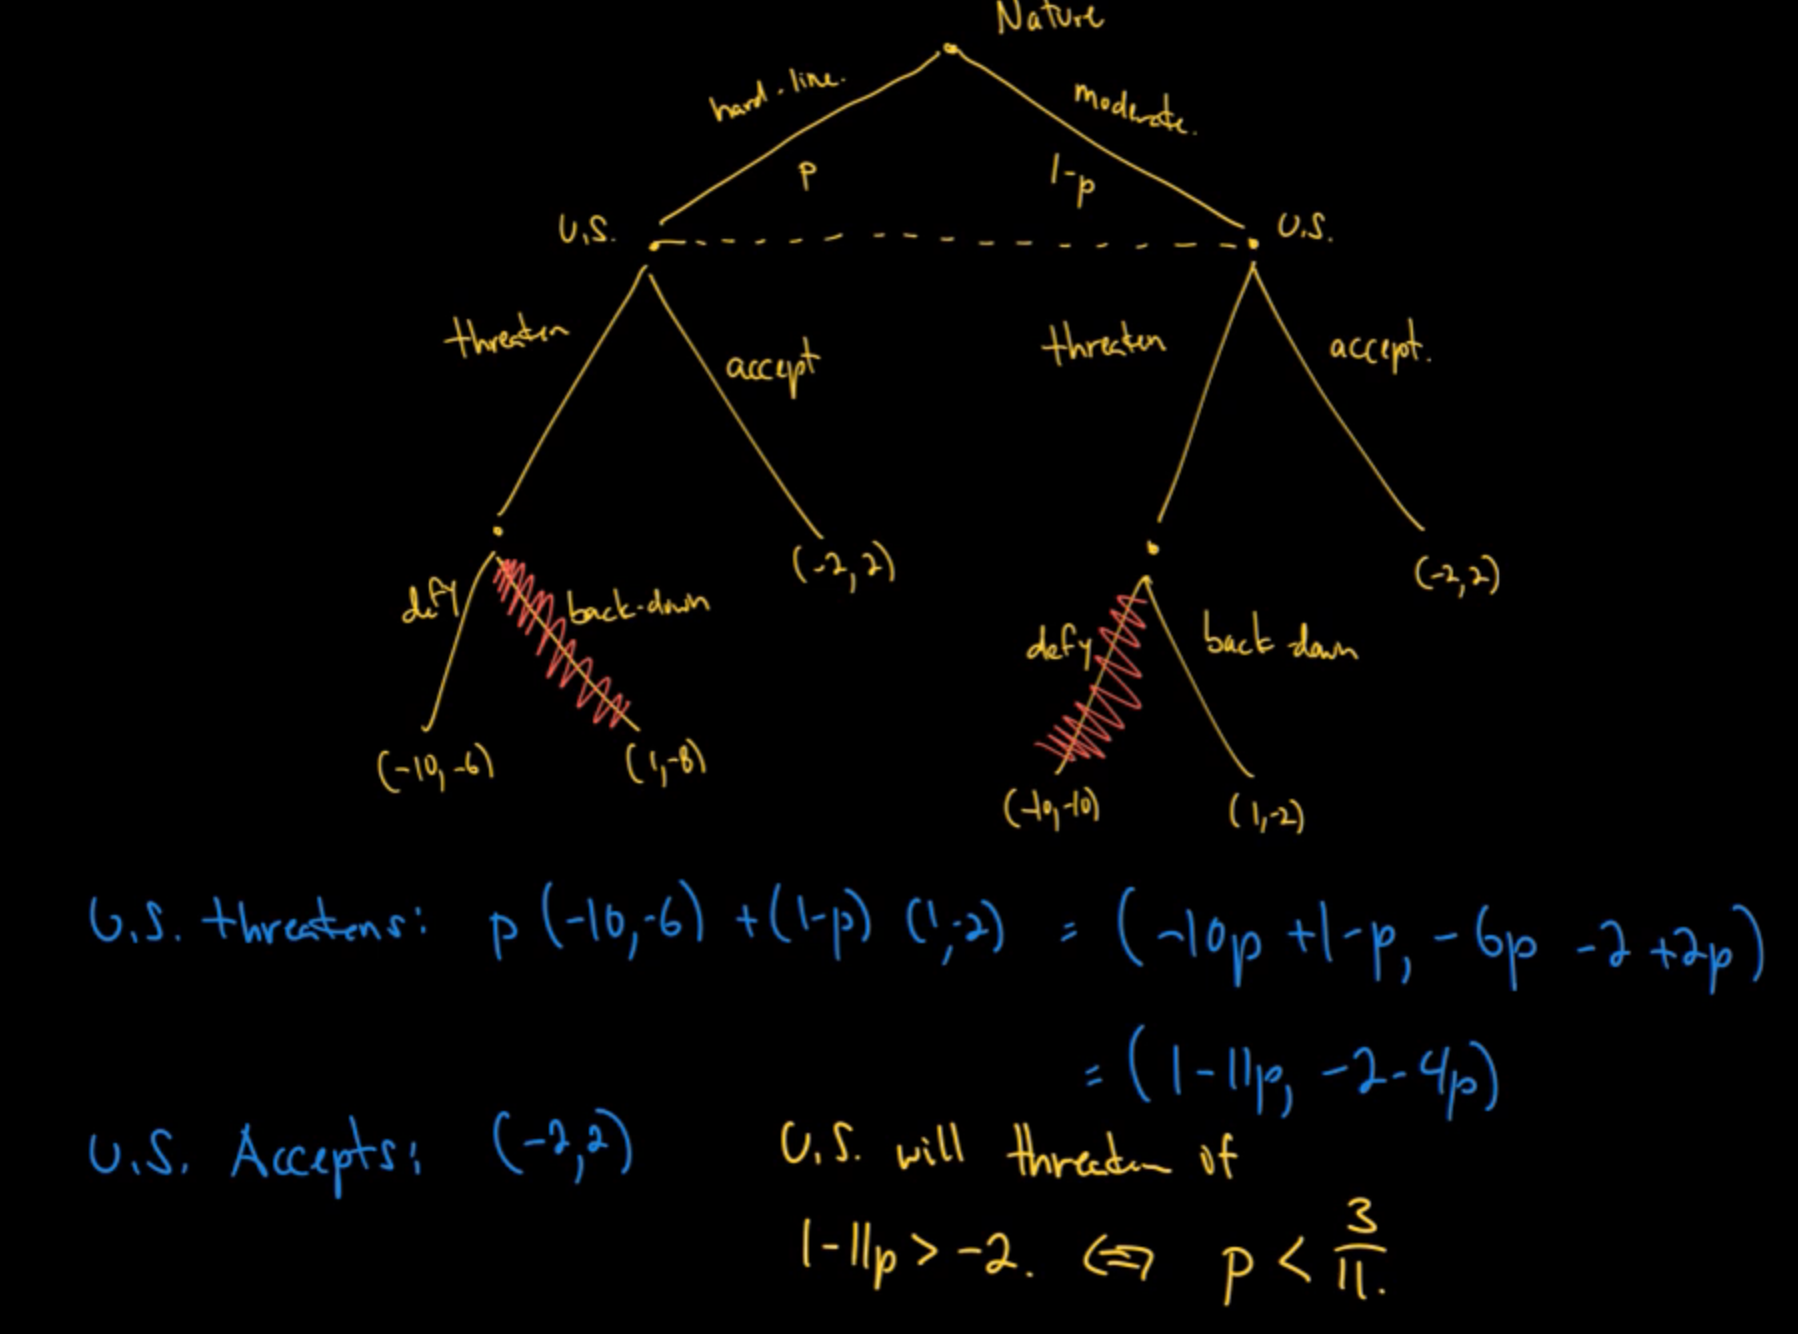 Nature
hard-line.
moderate.
p
1-p
U.S.
U.S.
threaten
accept
threaten
accept.
(-2,2)
(-2,2)
defy
back-down
defy
back down
(-10,-6)
(1,-8)
(-10,-10)
(1,-2)
U.S. threatens: p(-10,-6) + (1-p) (1,-2) = (-10p +1-p, -6p -2 +2p)
= (1-11p, -2-4p)
U.S. Accepts: (-2,2)
U.S. will threaten if
1-11p > -2. ⇔ p < 3/11.